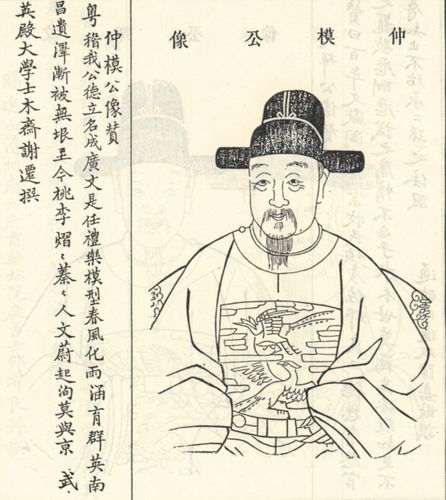 仲模公像
仲模公像贊
粵稽我公德立名成廣文是任禮樂模型春風化雨涵育群英南
昌遺澤漸被無垠至今桃李熠〻蓁〻人文蔚起洵莫與京 武
英殿大學士木齋謝遷撰